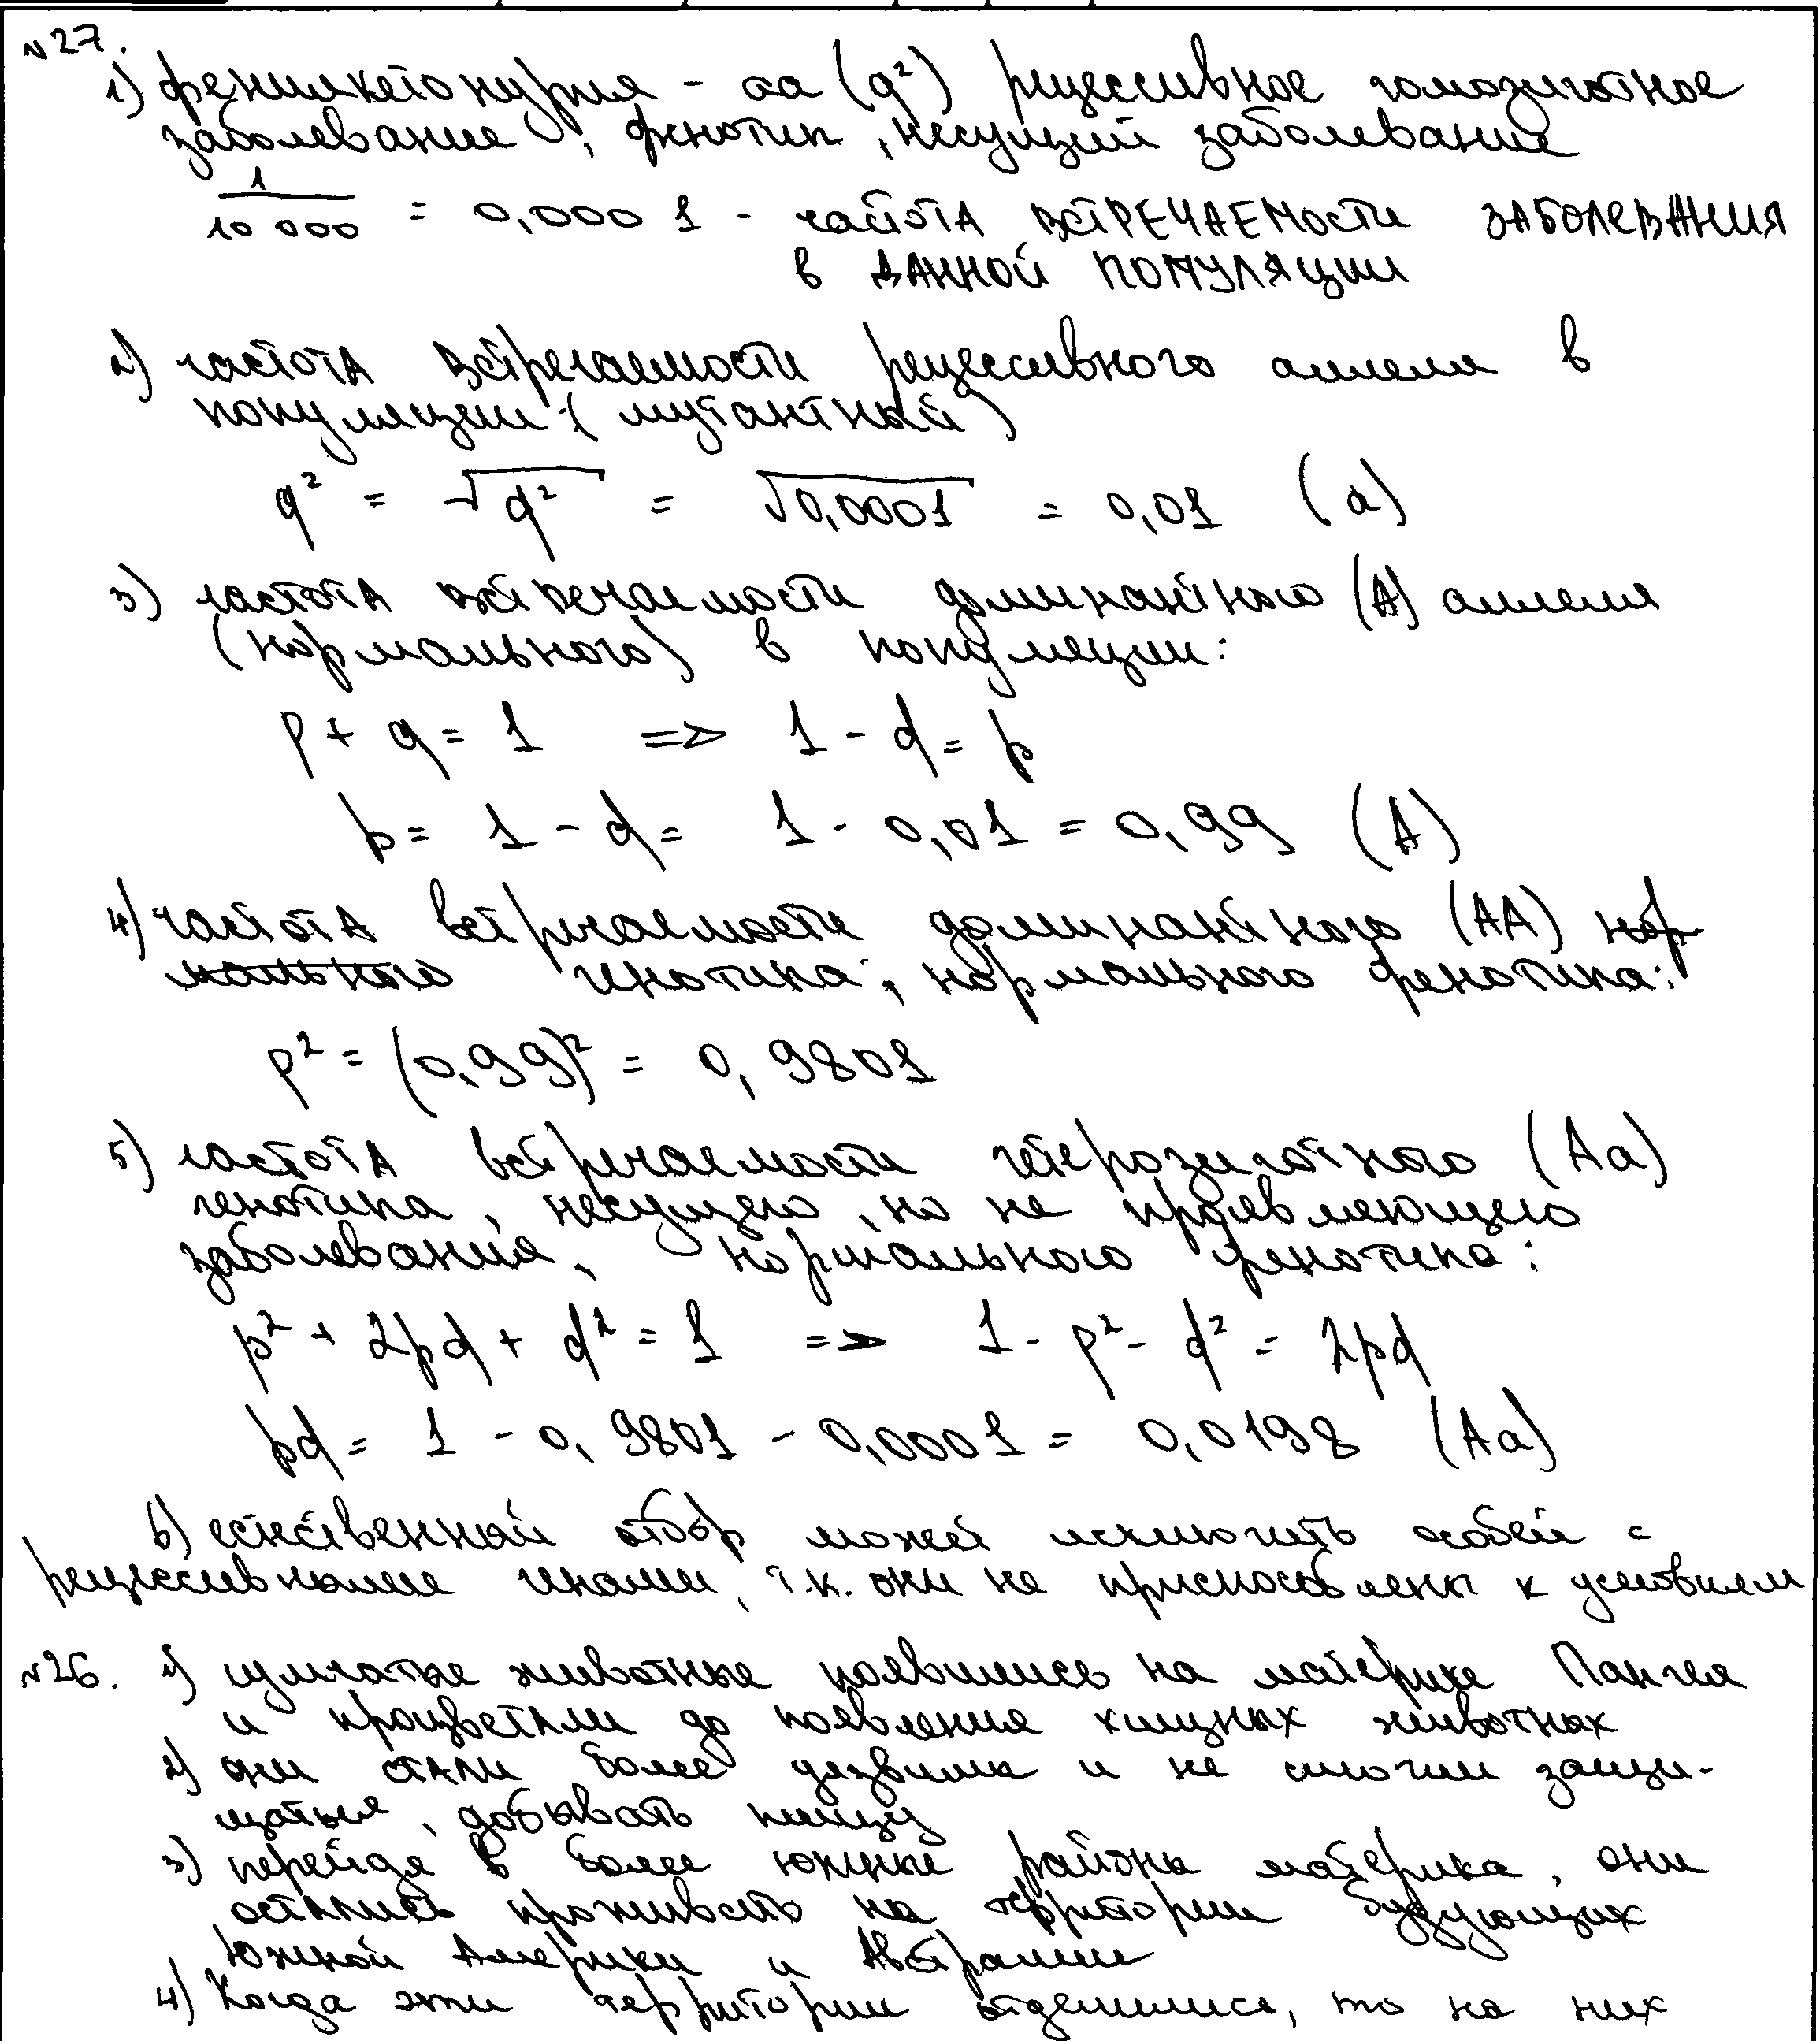 №27.
1) фенилкетонурия - аа (q²) рецессивное гомозиготное
заболевание, фенотип, несущий заболевание
1/10 000 = 0,0001 - частота встречаемости заболевания
в данной популяции
2) частота встречаемости рецессивного аллели в
популяции: (мутантный)
q² = √q² = √0,0001 = 0,01 (а)
3) частота встречаемости доминантного (А) аллеля
(нормального) в популяции:
p + q = 1 => 1 - q = p
p = 1 - q = 1 - 0,01 = 0,99 (А)
4) частота встречаемости доминантного (АА) нор-
мального генотипа, нормального фенотипа:
p² = (0,99)² = 0,9801
5) частота встречаемости гетерозиготного (Аа)
генотипа, несущего, но не проявляющего
заболевания, нормального фенотипа:
p² + 2pq + q² = 1 => 1 - p² - q² = 2pq
pq = 1 - 0,9801 - 0,0001 = 0,0198 (Аа)
6) естественный отбор может исключить особей с
рецессивными генами, т.к. они не приспособлены к условиям
№26. 1) сумчатые животные появились на материке Пангея
и процветали до появления хищных животных
2) они стали более уязвимы и не смогли защи-
щаться, добывать пищу
3) перейдя в более южные районы материка, они
остались проживать на территории будующих
Южной Америки и Австралии
4) Когда эти территории отделились, то на них